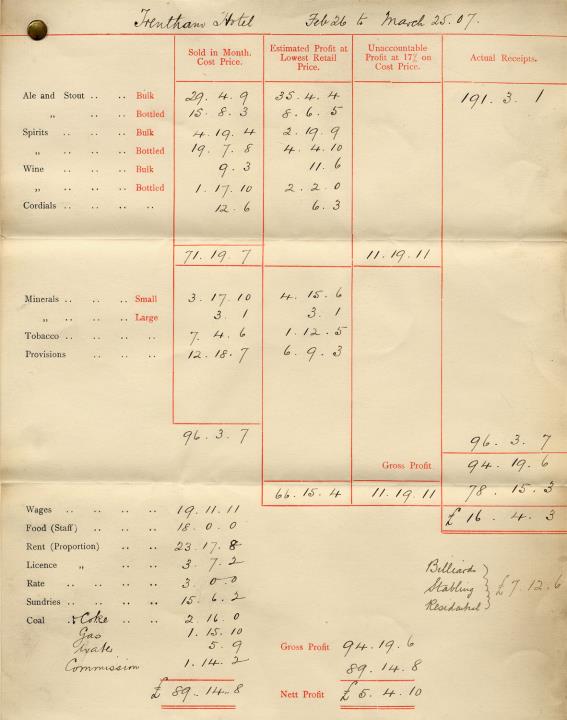 Trentham Hotel Feb 26 to March 25. 07.
Sold in Month. Cost Price. Estimated Profit at Lowest Retail Price. Unaccountable Profit at 17% on Cost Price. Actual Receipts.
Ale and Stout .. .. Bulk 29. 4. 9 35. 4. 4 191. 3. 1
„ .. .. Bottled 15. 8. 3 8. 6. 5
Spirits .. .. .. Bulk 4. 19. 4 2. 19. 9
„ .. .. .. Bottled 19. 7. 8 4. 4. 10
Wine .. .. .. Bulk 9. 3 11. 6
„ .. .. .. Bottled 1. 17. 10 2. 2. 0
Cordials .. .. .. .. 12. 6 6. 3
71. 19. 7 11. 19. 11
Minerals .. .. .. Small 3. 17. 10 4. 15. 6
„ .. .. .. Large 3. 1 3. 1
Tobacco .. .. .. .. 7. 4. 6 1. 12. 5
Provisions .. .. .. 12. 18. 7 6. 9. 3
96. 3. 7 96. 3. 7
Gross Profit 94. 19. 6
66. 15. 4 11. 19. 11 78. 15. 3
£ 16. 4. 3
Wages .. .. .. .. 19. 11. 11
Food (Staff) .. .. .. 18. 0. 0
Rent (Proportion) .. .. 23. 17. 8
Licence „ .. .. 3. 7. 2
Rate .. .. .. .. 3. 0. 0
Sundries .. .. .. .. 15. 6. 2
Billiards
Stabling £ 7. 12. 6
Residential
Coal & Coke 2. 16. 0
Gas 1. 15. 10
Water 5. 9 Gross Profit 94. 19. 6
Commission 1. 14. 2 89. 14. 8
£ 89. 14. 8 Nett Profit £ 5. 4. 10